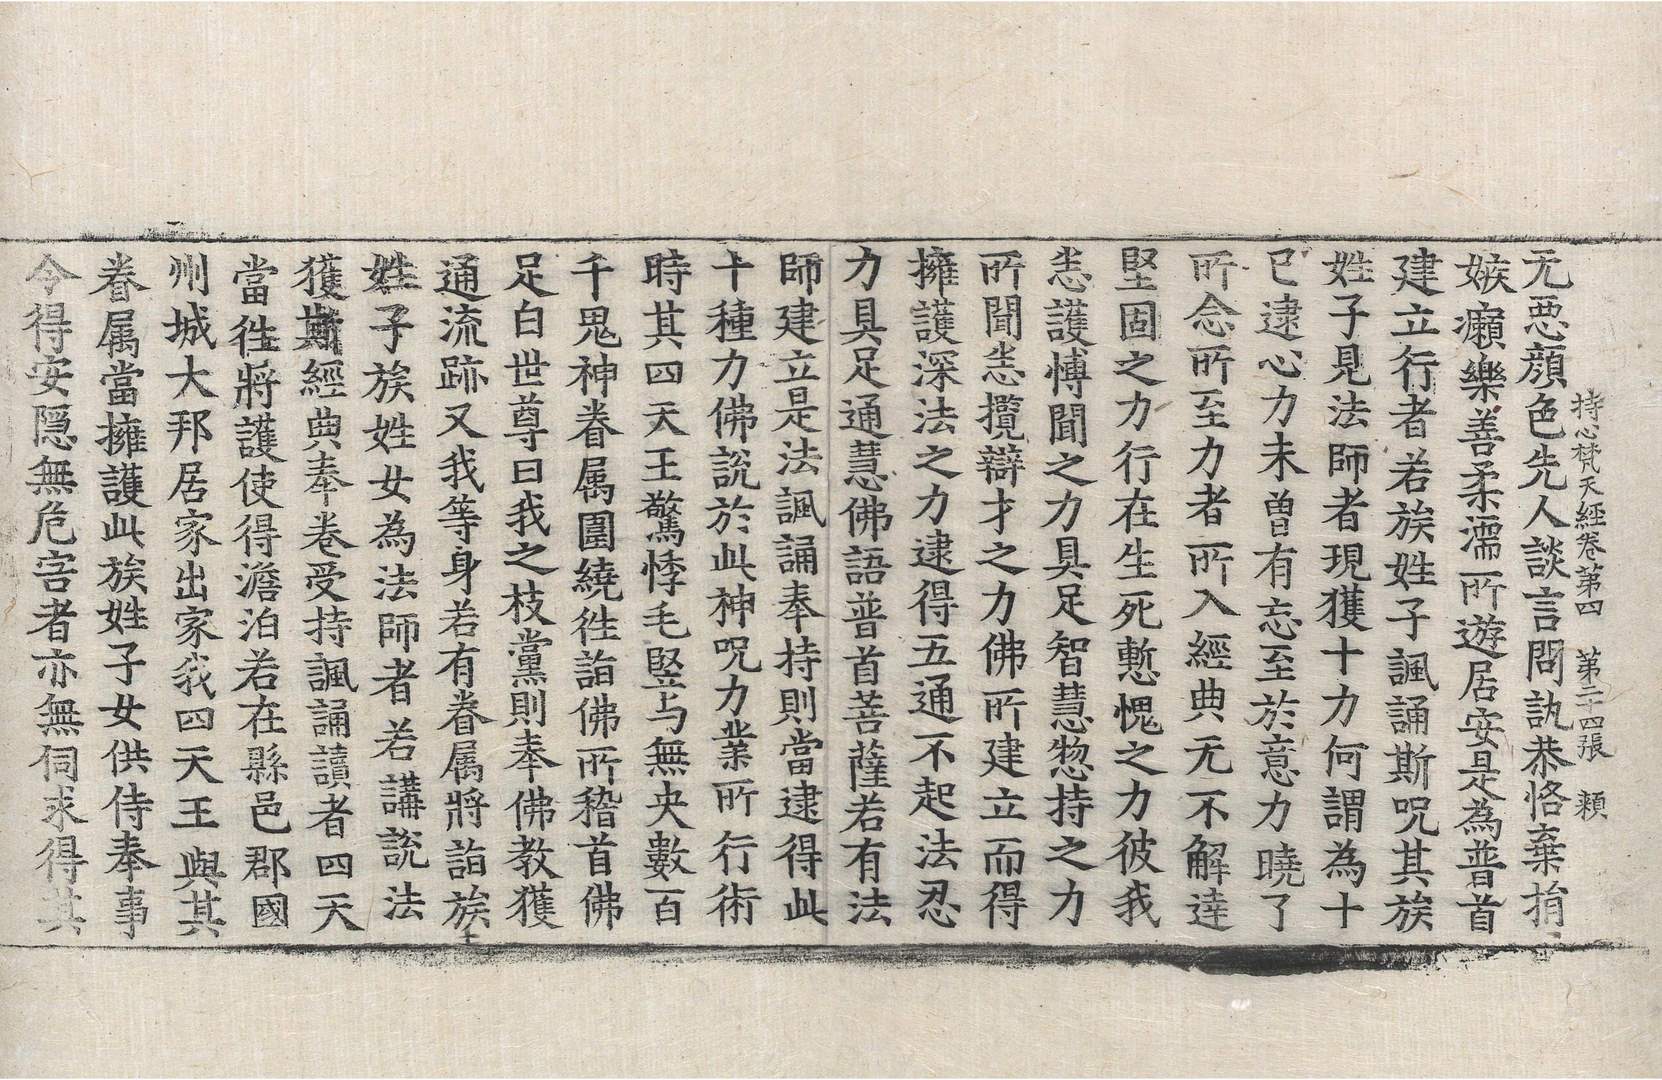 持心梵天經卷第四　第二十四張　頼
无惡顔色先人談言問訊恭恪棄捐
嫉癩樂善柔濡所遊居安是為普首
建立行者若族姓子諷誦斯呪其族
姓子見法師者現獲十力何謂為十
已逮心力未曾有忘至於意力曉了
所念所至力者所入經典无不解達
堅固之力行在生死慙愧之力彼我
恙護博聞之力具足智慧惣持之力
所聞恙攬辯才之力佛所建立而得
擁護深法之力逮得五通不起法忍
力具足通慧佛語普首菩薩若有法
師建立是法諷誦奉持則當逮得此
十種力佛說於此神呪力業所行術
時其四天王驚悸毛竪与無央數百
千鬼神眷属圍繞徃詣佛所稽首佛
足白世尊曰我之枝黨則奉佛教獲
通流跡又我等身若有眷属將詣族
姓子族姓女為法師者若講說法
獲斯經典奉卷受持諷誦讀者四天
當徃將護使得澹泊若在縣邑郡國
州城大邦居家出家我四天王與其
眷属當擁護此族姓子女供侍奉事
令得安隱無危害者亦無伺求得其